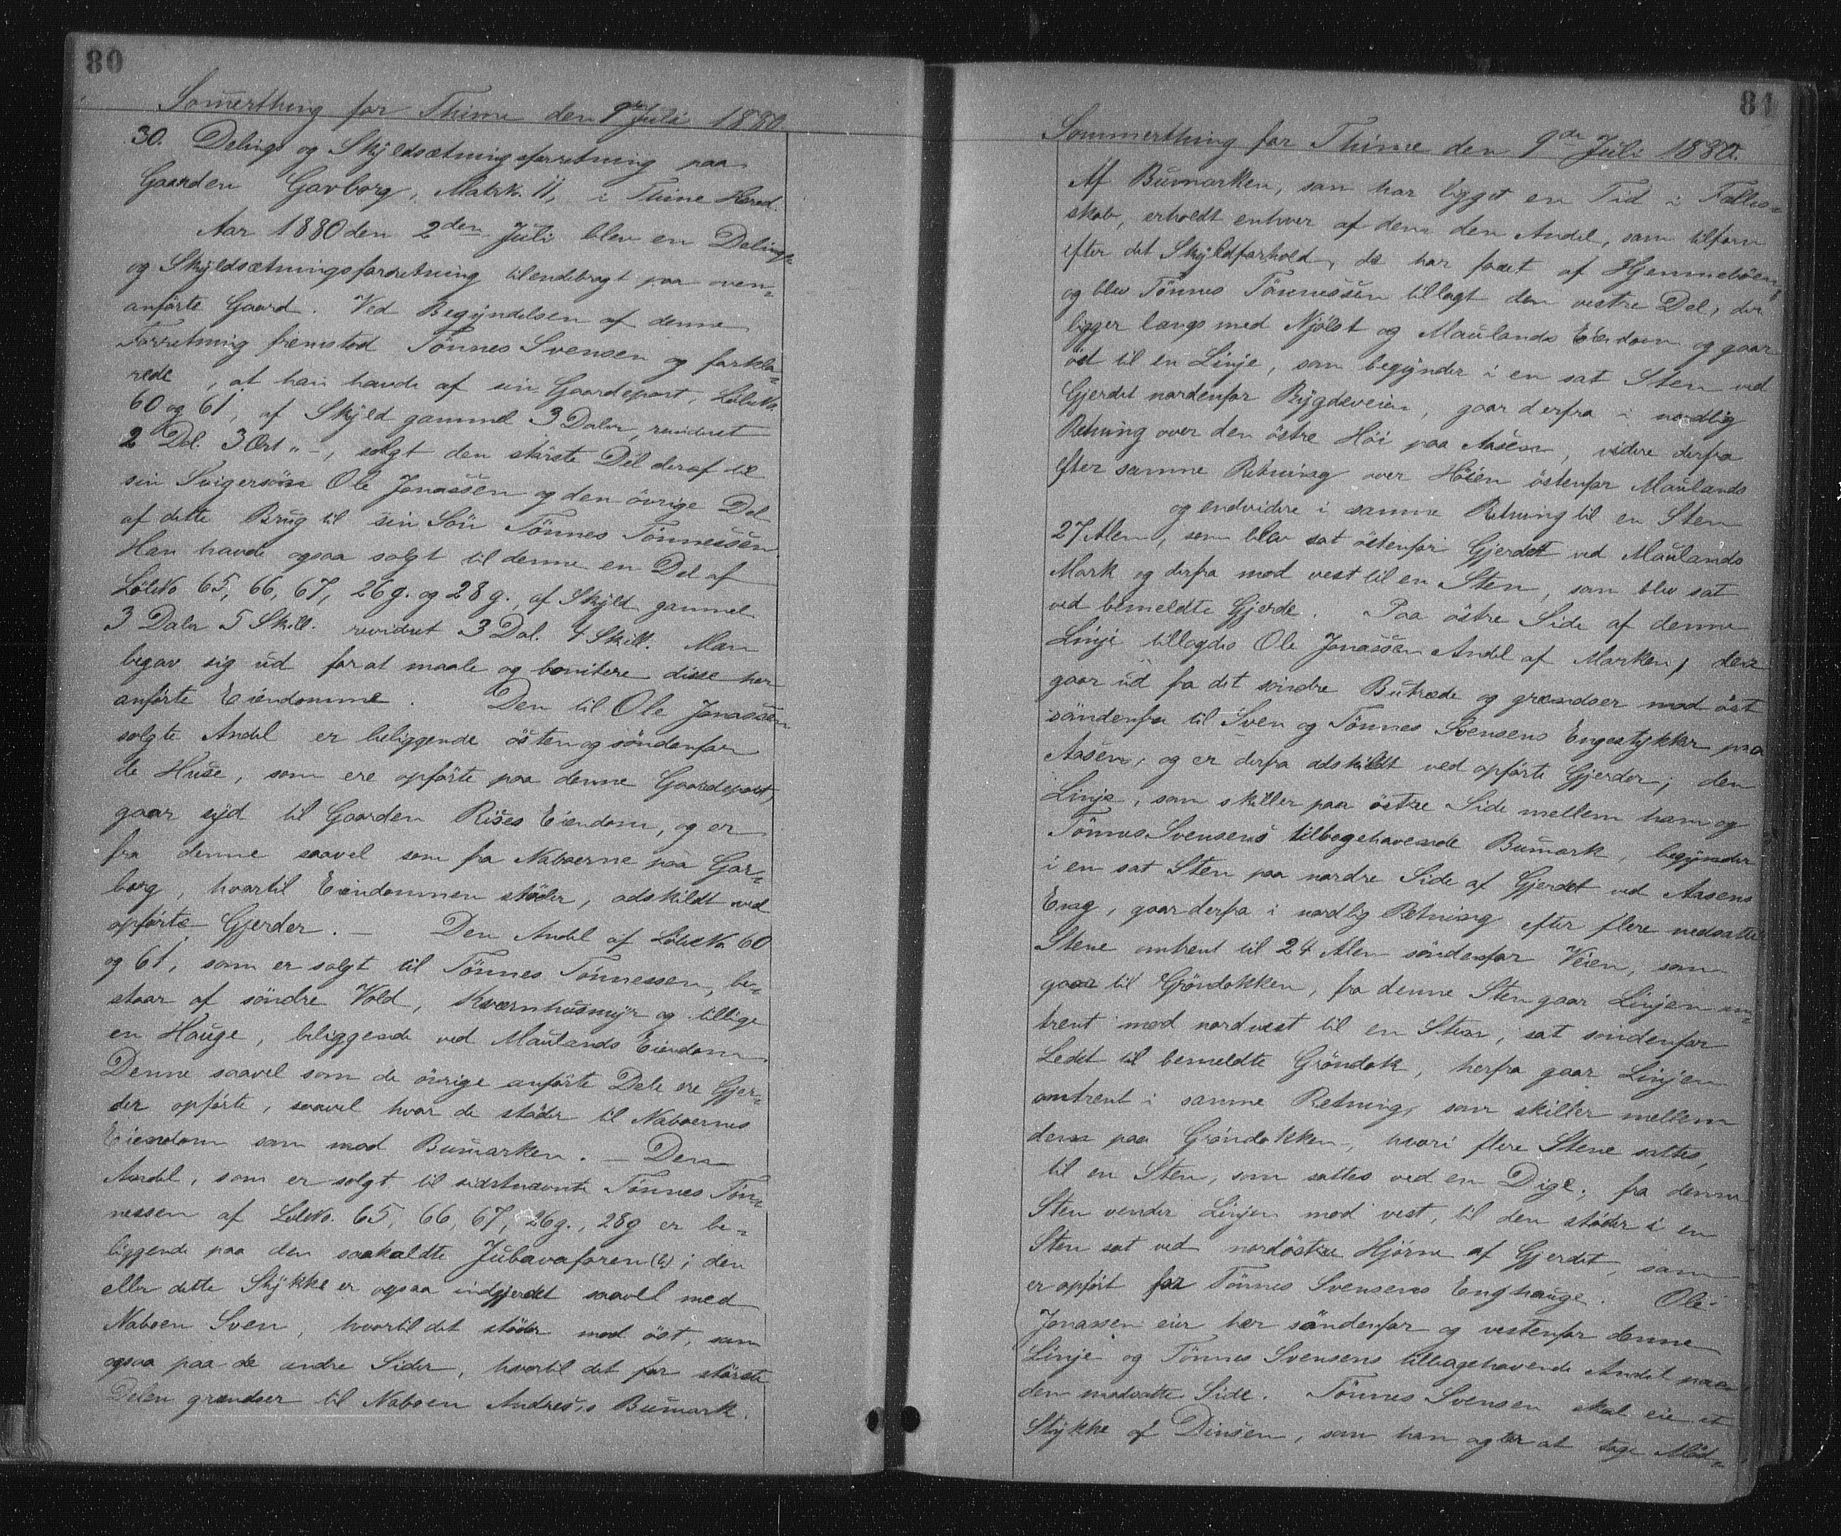 80
Somerthing for Thime den 9de Juli 1880
30. Delings og Skyldsætningsforretning paa
Gaarden Garborg, Matrk. 11, i Thime Hered.
Aar 1880 den 2den Juli blev en Delings-
og Skyldsætningsforretning tilendebragt paa oven-
anförte Gaard. Ved Begyndelsen af denne
Forretning fremstod Tönnes Svensen og forkla-
rede, at han havde af sin Gaardepart, LöbeNo
60 og 61, af Skyld gammel 3 Daler, revideret
2 Dal. 3 Ort " -, solgt den störste Del deraf til
sin Svigersön Ole Jonassen og den övrige Del
af dette Brug til sin Sön Tönnes Tönnessen
Han havde ogsaa solgt til denne en Del af
LöbeNo 65, 66, 67, 26g. og 28g., af Skyld gammel
3 Daler 5 Skill. revideret 3 Dal. 4 Skill. Man
begav sig ud for at maale og bonitere disse her
anförte Eiendomme. Den til Ole Jonassen
solgte Andel er beliggende östen og söndenfor
de Huse, som ere opförte paa denne Gaardepart,
gaar syd til Gaarden Rises Eiendom, og er
fra denne saavel som fra Naboerne paa Gar-
borg, hvortil Eiendommen stöder, adskildt ved
opförte Gjerder. — Den Andel af LöbeNo 60
og 61, som er solgt til Tönnes Tönnessen, be-
staar af söndre Vold, Kværnhusmyr og tillige
en Hauge, beliggende ved Maulands Eiendom
Denne saavel som de övrige anförte Dele ere Gjer-
der opförte, saavel hvor de stöder til Naboernes
Eiendom som mod Bumarken. — Den
Andel, som er solgt til sidstnævnte Tönnes Tön-
nessen af LöbeNo. 65, 66, 67, 26g., 28g er be-
liggende paa den saakaldte Jubavaforen(?); den
eller dette Stykke er ogsaa indgjerdet saavel med
Naboen Sven, hvortil det stöder mod öst, som
ogsaa paa de andre Sider, hvortil det for störste
Delen grændser til Naboen Andreas's Bumark.
81
Sommerthing for Thime den 9de Juli 1880.
Af Bumarken, som har ligget en Tid i Fælles-
skab, erholdt enhver af dem den Andel, som tilforn
efter det Skyldforhold, de har faaet af Hjemmeböen,
og blev Tönnes Tönnessen tillagt den vestre Del, der
ligger langs med Njölst og Maulands Eiendom og gaar
öst til en Linje, som begynder i en sat Sten ved
Gjerdet nordenfor Bygdeveien, gaar derfra i nordlig
Retning over den östre Höi paa Aasen, videre derfra
efter samme Retning over Höien östenfor Maulands
og endvidere i samme Retning til en Sten
27 Alen, som blev sat östenfor Gjerdet ved Maulands
Mark og derfra mod vest til en Sten, som blev sat
ved bemeldte Gjerde. Paa östre Side af denne
Linje tillagdes Ole Jonassen Andel af Marken, den
gaar ud fra det söndre Butræde og grændser mod öst
söndenfra til Sven og Tönnes Svensens Engestykker paa
Aasen, og er derfra adskildt ved opförte Gjerder; den
Linje, som skiller paa östre Side mellem ham og
Tönnes Svensens tilbagehavende Bumark, begynder
i en sat Sten paa nordre Side af Gjerdet ved Aasens
Eng, gaar derfra i nordlig Retning efter flere nedsatte
Stene omtrent til 24 Alen söndenfor Veien, som
gaar til Gröndokken, fra denne Sten gaar Linjen om-
trent mod nordvest til en Sten, sat söndenfor
Ledet til bemeldte Gröndok, herfra gaar Linjen
omtrent i samme Retning, som skiller mellem
dem paa Gröndokken, hvori flere Stene sattes,
til en Sten, som sattes ved en Dige; fra denne
Sten vender Linjen mod vest, til den stöder i en
Sten sat ved nordöstre Hjörne af Gjerdet som
er opfört for Tönnes Svensens Enghauge. Ole
Jonassen eier her söndenfor og vestenfor denne
Linje og Tönnes Svensens tilbagehavende Andel paa
den modsatte Side. Tönnes Svensen skal eie et
Stykke af Dinsen, som han agter at tage Mød-